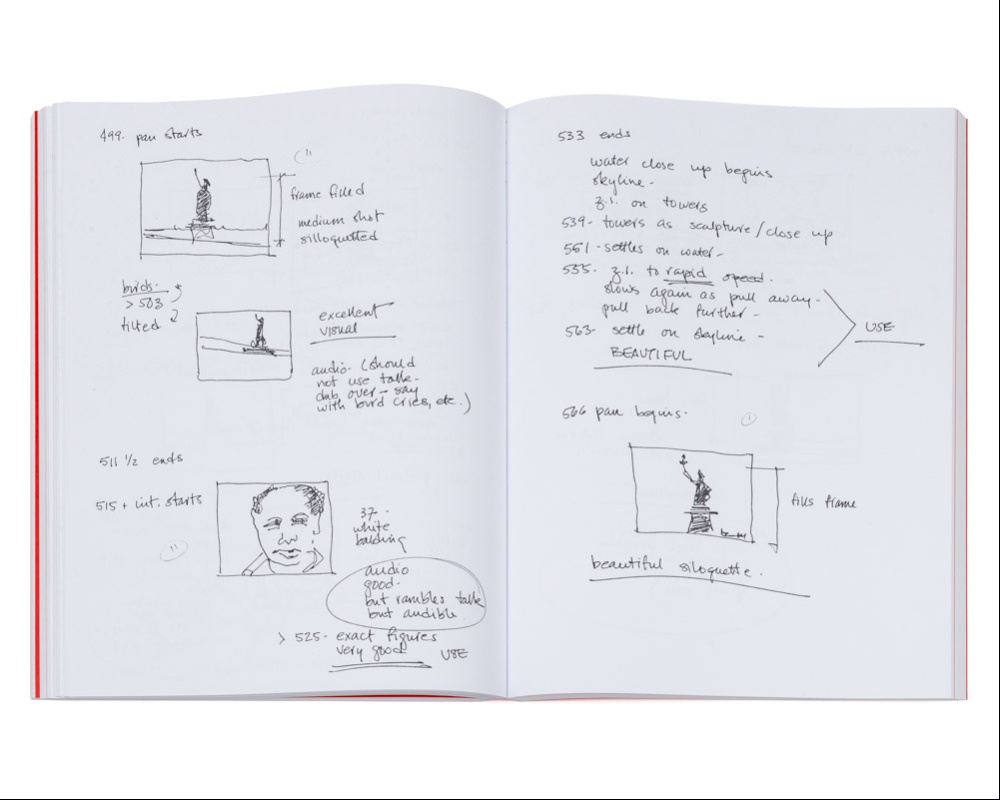 499. pan starts
frame filled
medium shot
silloquetted
birds.
> 503
tilted
excellent
visual
audio. (should
not use talk.
dub over - say
with bird cries, etc.)
511 1/2 ends
515 + int. starts
37.
white
balding
audio
good.
but rambles talk
but audible.
> 525. exact figures
very good USE
533 ends
water close up begins
skyline.
z.i. on towers
539. towers as sculpture/close up
551. settles on water.
555. z.i. to rapid speed.
slows again as pull away.
pull back further.
563. settle on skyline -
BEAUTIFUL
USE
566 pan begins.
fills frame
beautiful siloquette.